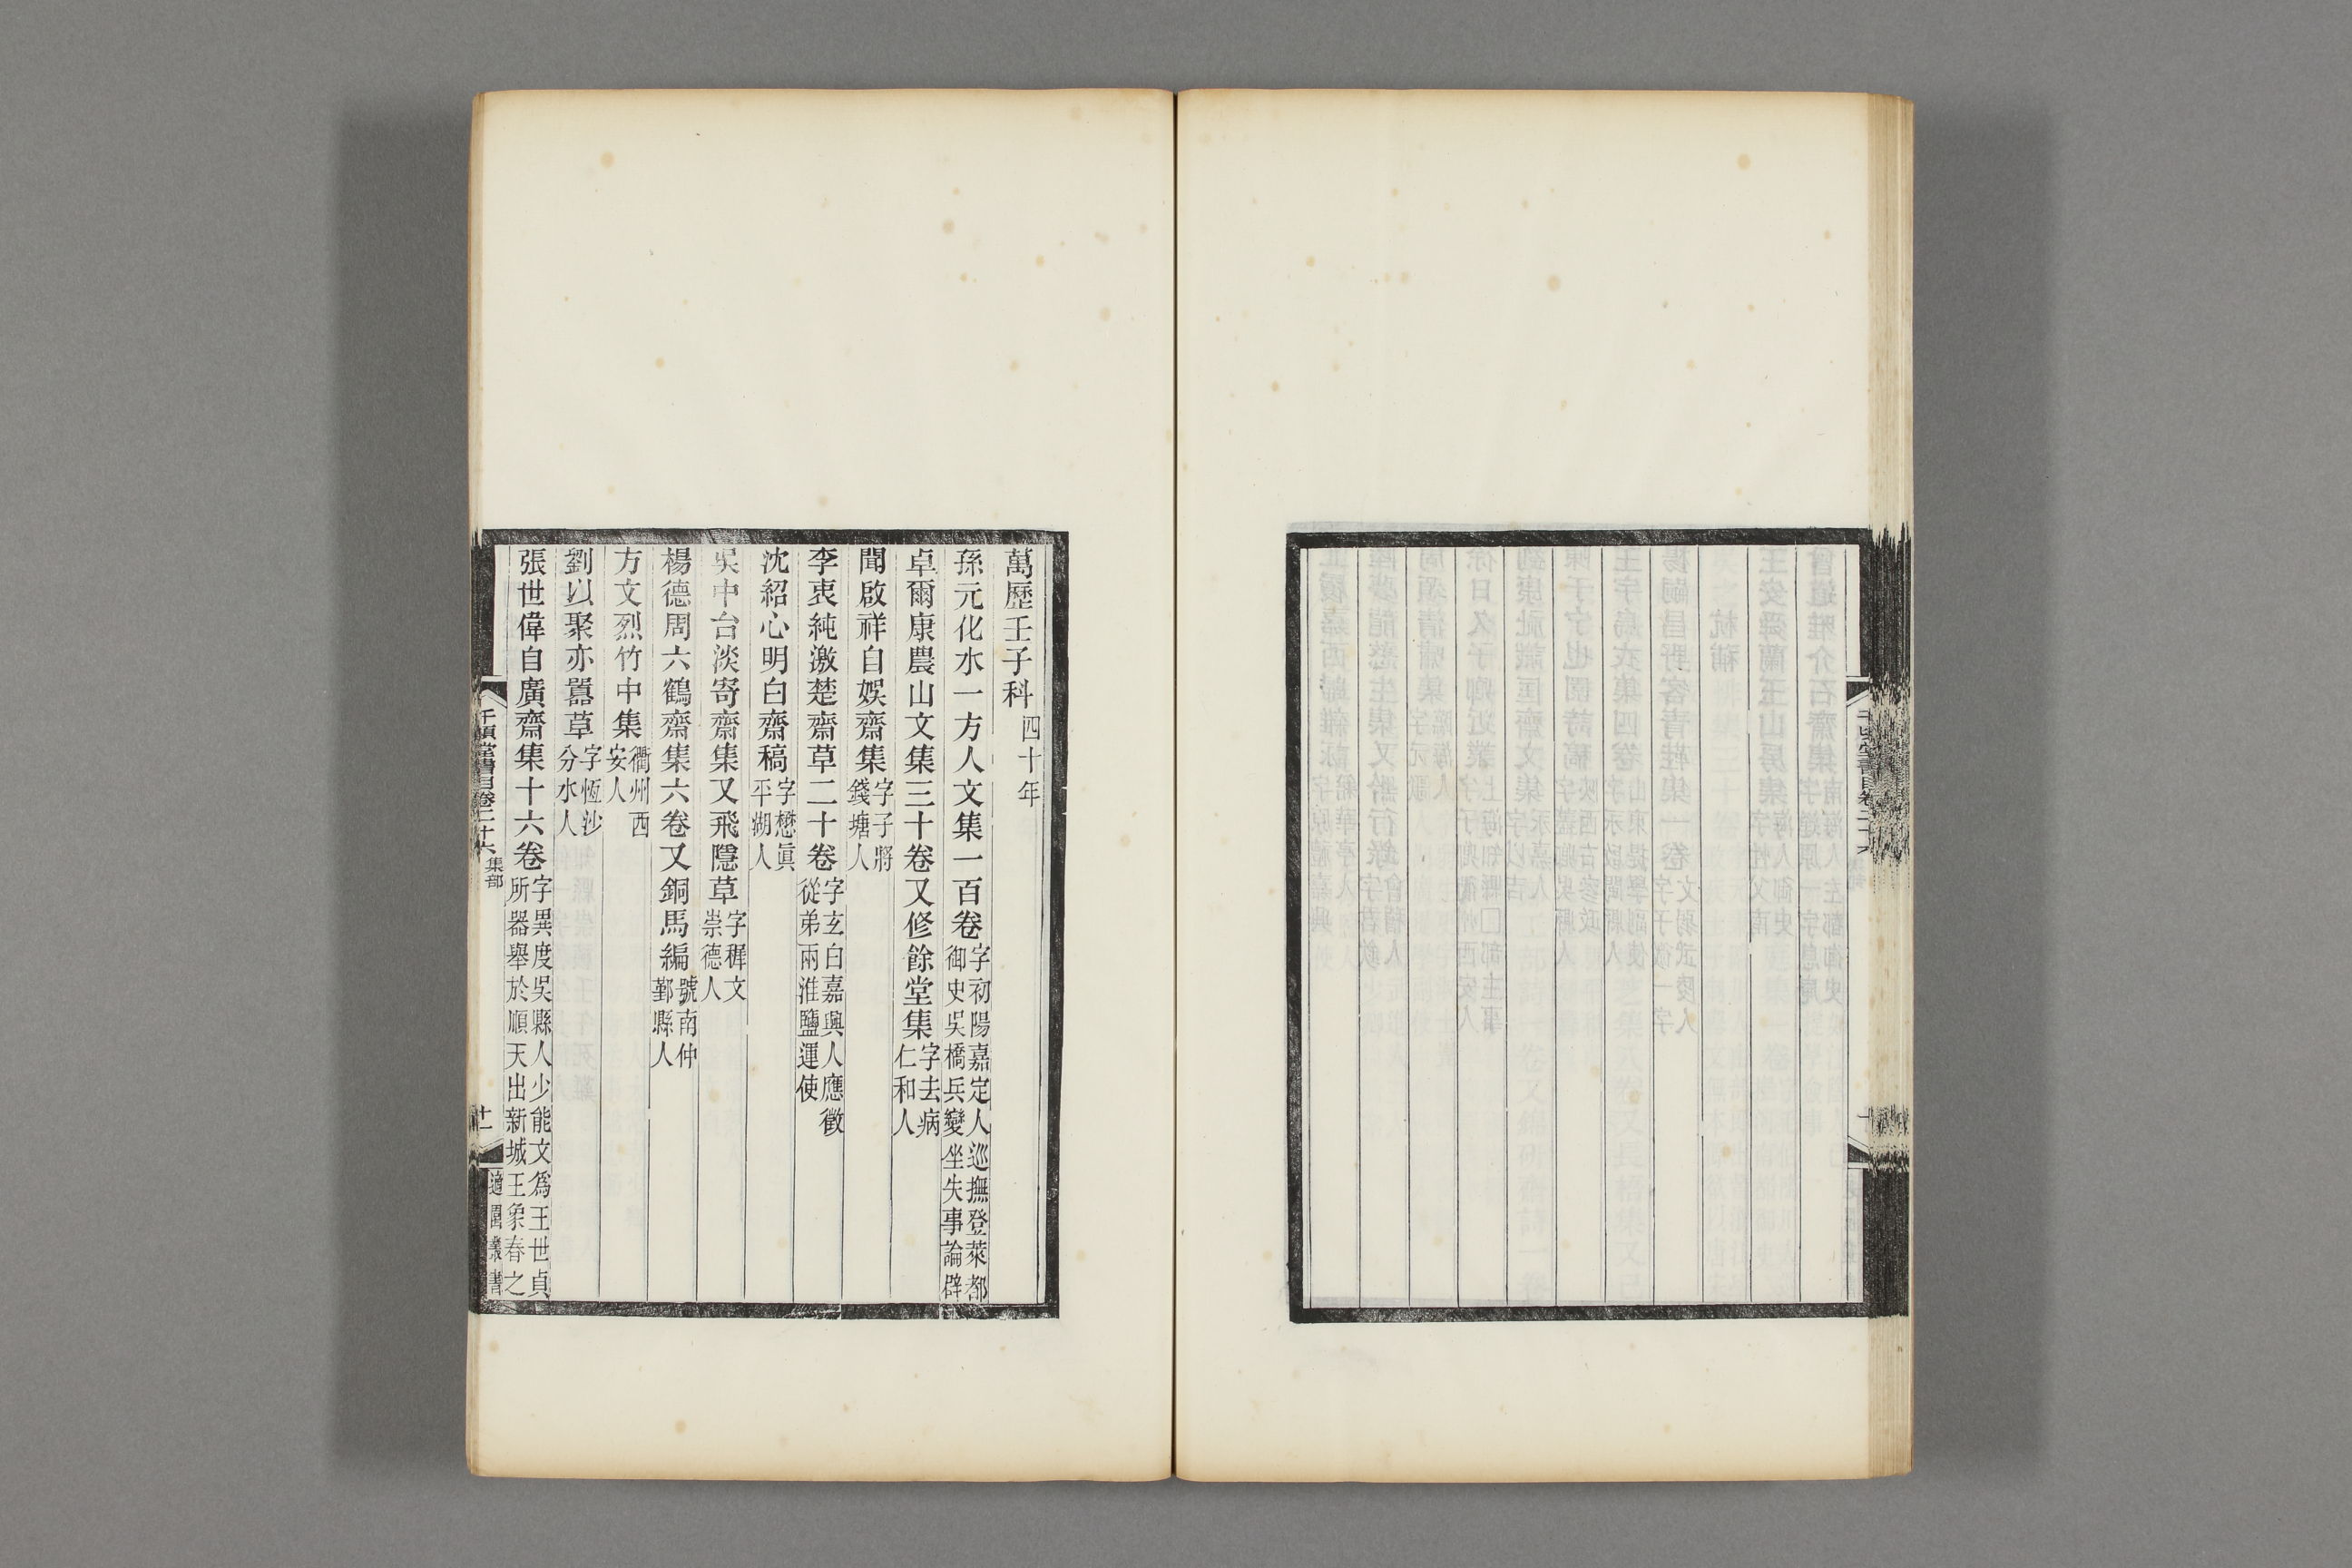 萬歷壬子科四十年
孫元化水一方人文集一百卷字初陽嘉定人巡撫登萊都御史吳橋兵變坐失事論辟
卓爾康農山文集三十卷又修餘堂集字去病仁和人
聞啟祥自娛齋集字子將錢塘人
李衷純激楚齋草二十卷字玄白嘉興人應徵從弟兩淮鹽運使
沈紹心明白齋稿字懋眞平湖人
吳中台淡寄齋集又飛隱草字穉文崇德人
楊德周六鶴齋集六卷又銅馬編號南仲鄞縣人
方文烈竹中集衢州西安人
劉以聚亦囂草字恆沙分水人
張世偉自廣齋集十六卷字異度吳縣人少能文爲王世貞所器舉於順天出新城王象春之
千頃堂書目卷二十六 集部
十一
適園叢書